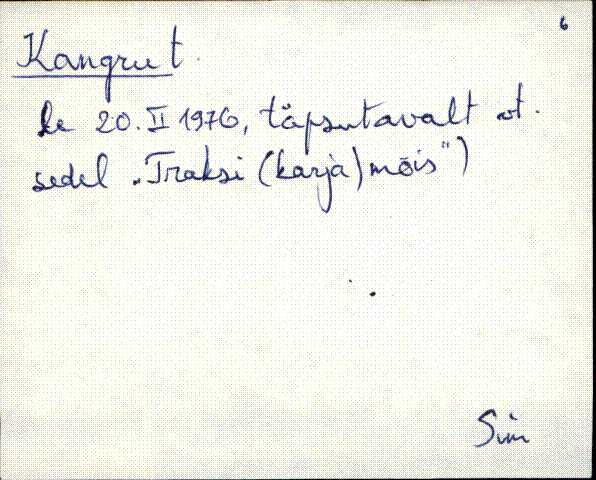 6
Kangru t.
20. II 1976, täpsutavalt vt.
sedel „Traksi (karja)mõis")
Sim